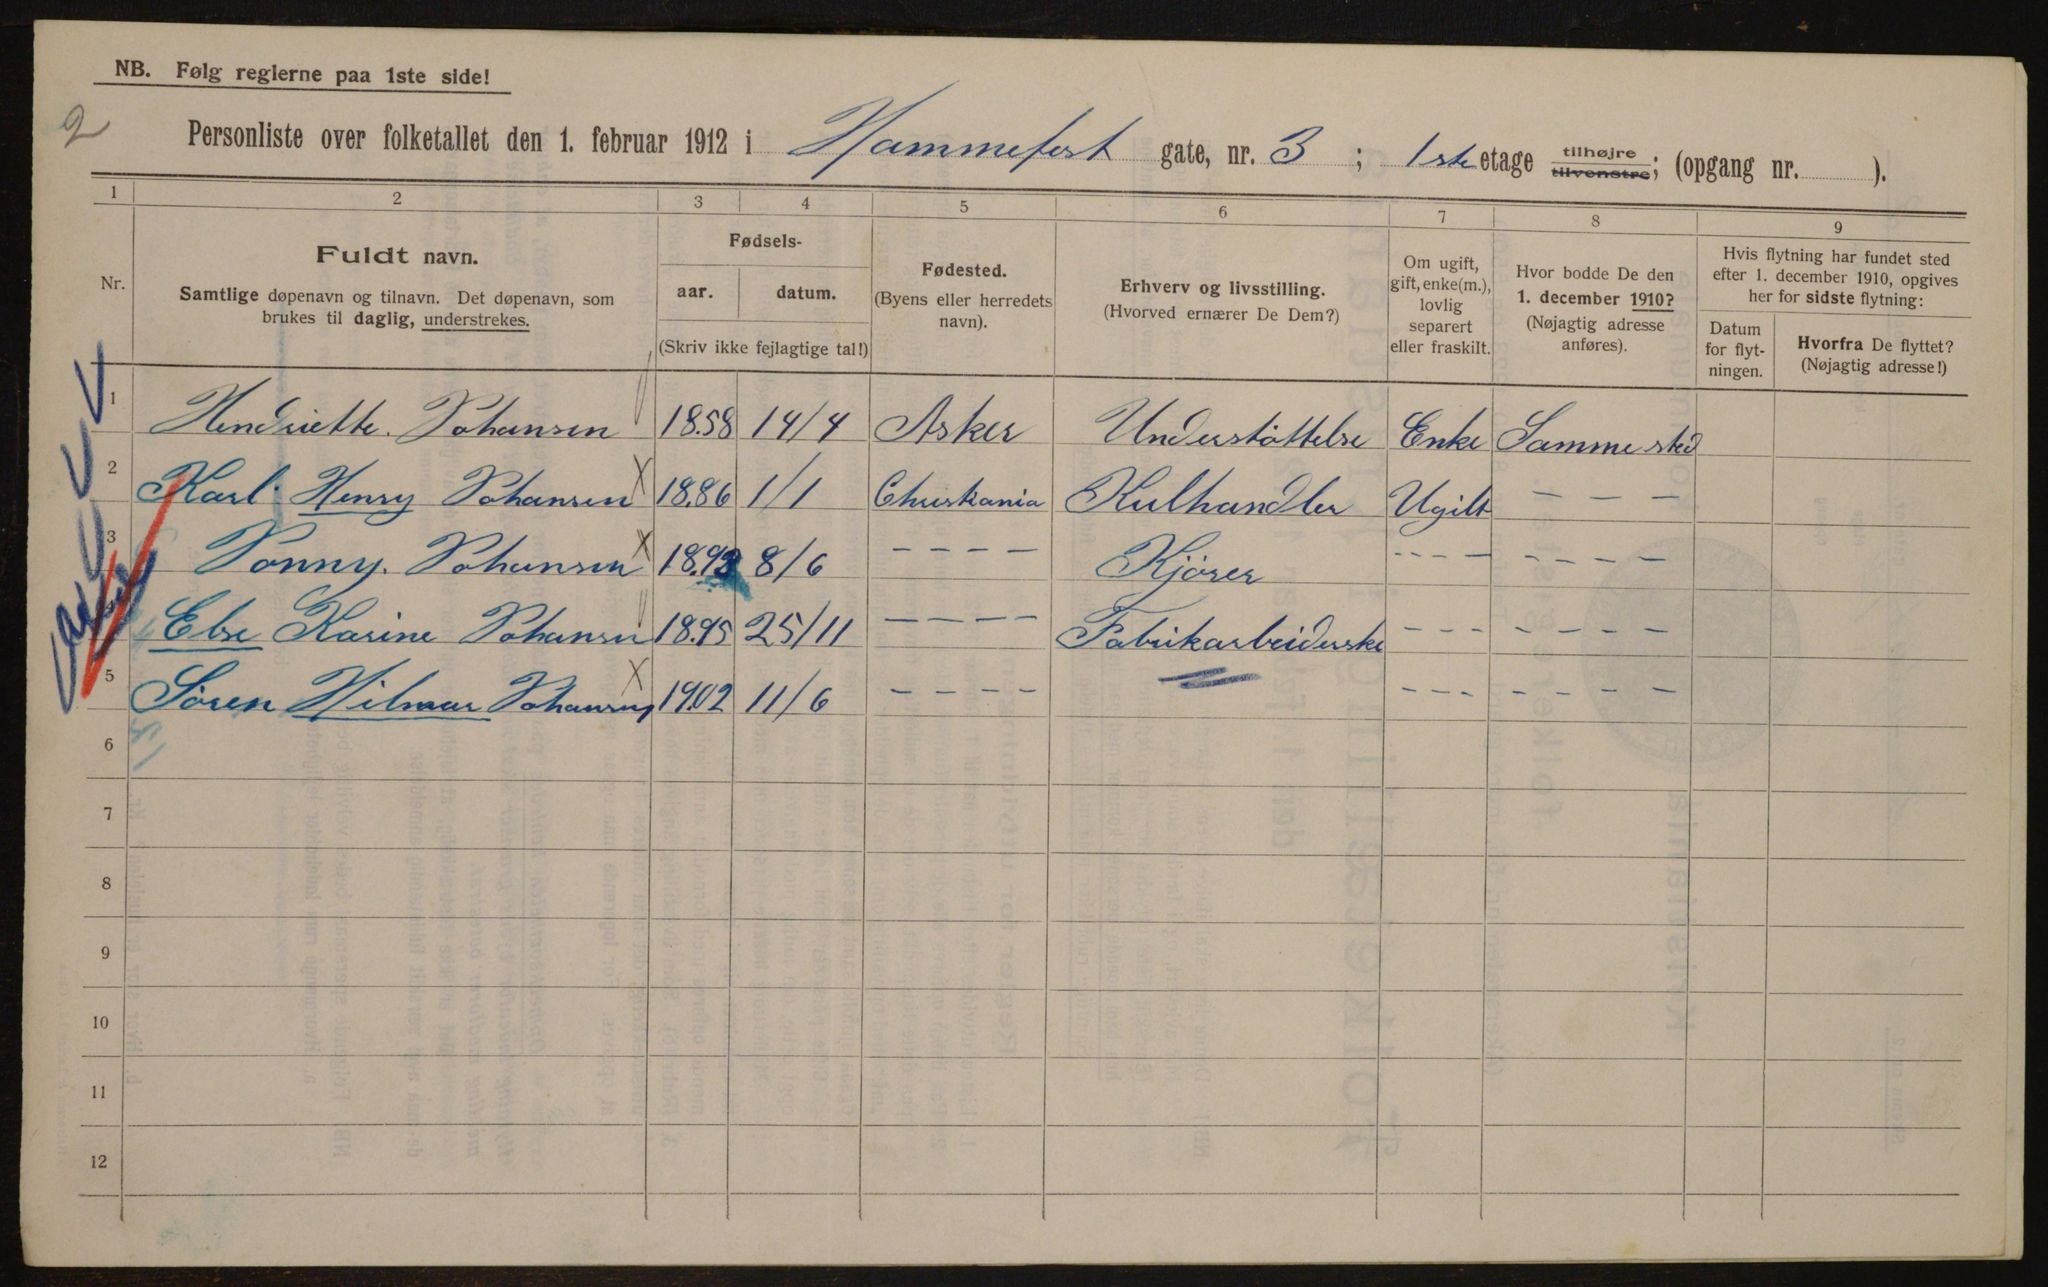 NB. Følg reglerne paa 1ste side!
2
Personliste over folketallet den 1. februar 1912 i Hammefest gate, nr. 3 ; 1ste etage tilhøjre tilvenstre; (opgang nr. ).
1 2 3 4 5 6 7 8 9
Nr.
Fuldt navn.
Samtlige døpenavn og tilnavn. Det døpenavn, som
brukes til daglig, understrekes.
Fødsels-
aar. datum.
(Skriv ikke fejlagtige tal!)
Fødested.
(Byens eller herredets
navn).
Erhverv og livsstilling.
(Hvorved ernærer De Dem?)
Om ugift,
gift, enke(m.),
lovlig
separert
eller fraskilt.
Hvor bodde De den
1. december 1910?
(Nøjagtig adresse
anføres).
Hvis flytning har fundet sted
efter 1. december 1910, opgives
her for sidste flytning:
Datum
for flyt-
ningen.
Hvorfra De flyttet?
(Nøjagtig adresse!)
1 Hendriette. Johansen 1858 14/4 Asker Understöttelse Enke Samme sted
2 Karl Henry Johansen X 1886 1/1 Christiania Kulhandler Ugift – – – –
3 Jonny. Johansen X 1893 8/6 – – – – Kjörer – – – – – – – –
Else Karine Johansen 1895 25/11 – – – – Fabrikarbeiderske – – – – – – – –
5 Sören Hilmar Johansen X 1902 11/6 – – – – – – – – – – – – –
6
7
8
9
10
11
12